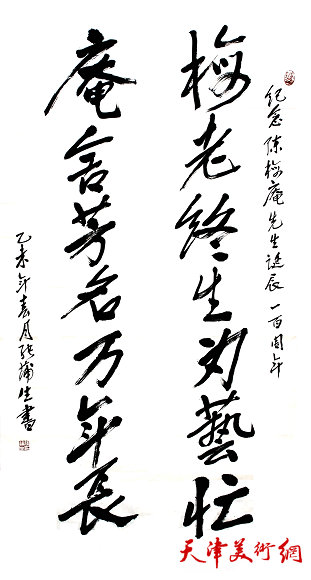 纪念陈梅庵先生诞辰一百周年
梅老终生为藝忙
庵舍芳名万年長
乙未年春月張蒲生書
天津美術網